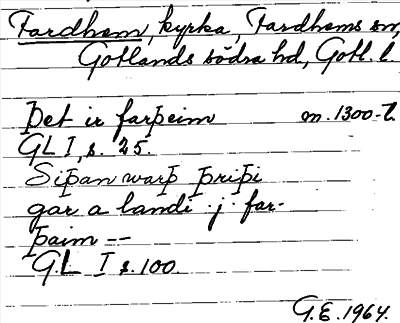 Fardhem, kyrka, Fardhems sn,
Gotlands södra hd, Gotl. l.
Þet ir farþeim m. 1300-t.
GL I, s. 25.
Siþan warþ þriþi
gar a landi .j. far-
þaim --
G.L I s. 100.
G.E. 1964.